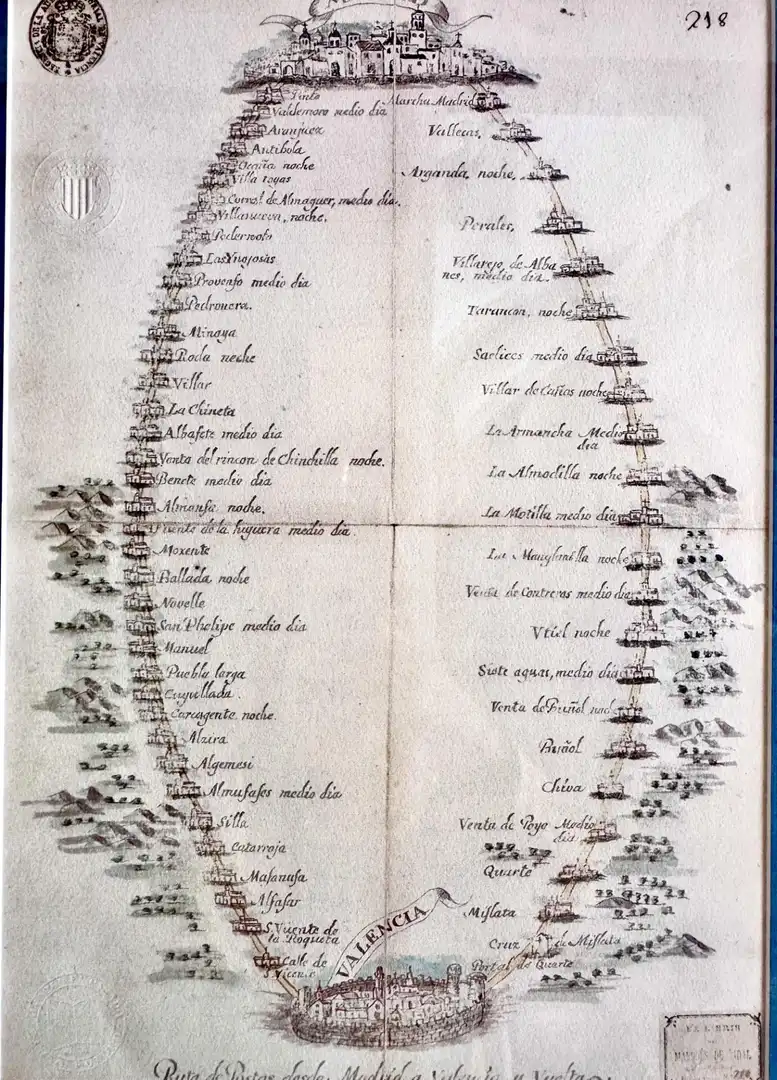 218
Pinto
Valdemoro medio dia
Aranjuez
Antibola
Ocaña noche
Villa toyas
Corral de Almaguer, medio dia.
Villanueva, noche.
Pedernoso
Las Ynojosas
Provenso medio dia
Pedronera.
Minaya
Roda noche
Villar
La Chineta
Albasete medio dia
Venta del rincon de Chinchilla noche.
Benete medio dia
Almansa noche.
Fuente de la higuera medio dia.
Moxente
Ballada noche
Novelle
San Phelipe medio dia
Manuel
Puebla larga
Cogullada.
Carcagente noche.
Alzira
Algemesi
Almusafes medio dia
Silla
Catarroja
Masanasa
Alfafar
S. Visente de
la Roqueta
Calle de
S. Vicente
Marcha Madrid
Vallecas.
Arganda, noche,
Perales,
Villarejo de Alba
nes, medio dia.
Tarancon, noche
Saelices medio dia
Villar de Cañas noche
La Armancha Medio
dia
La Almodilla noche
La Motilla medio dia
La Manglanilla noche
Venta de Contreras medio dia
Vtiel noche
Siete aguas, medio dia
Venta de Buñol noche
Buñol
Chiva
Venta de Poyo Medio
dia
Quarte
Mislata
Cruz de Mislata
Portal de Quarte
VALENCIA
Ruta de Postas desde Madrid a Valencia y Vuelta